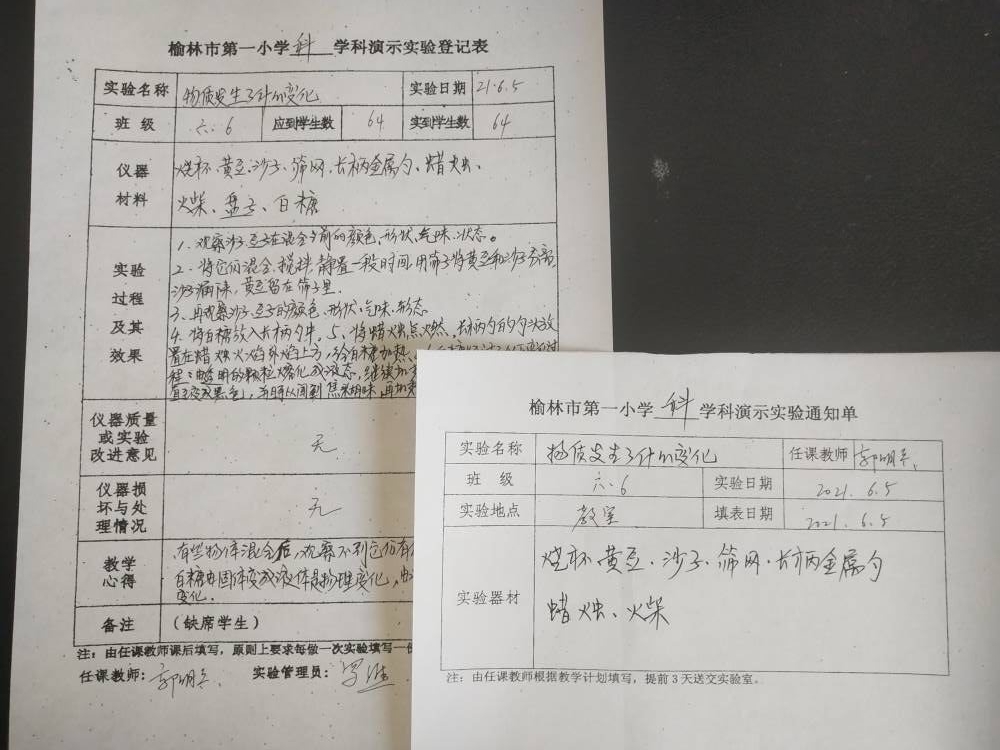 榆林市第一小学科学科演示实验登记表
实验名称 物质发生了什么变化 实验日期 21.6.5
班 级 六.6 应到学生数 64 实到学生数 64
仪器
材料
烧杯、黄豆、沙子、筛网、长柄金属勺、蜡烛、
火柴、盘子、白糖
实验
过程
及其
效果
1、观察沙子、豆子在混合前的颜色、形状、气味、状态。
2、将它们混合、搅拌,静置一段时间,用筛子将黄豆和沙子分离,
沙子漏下来,黄豆留在筛子里.
3、再观察沙子、豆子的颜色、形状、气味、形态
4、将白糖放入长柄勺中。5、将蜡烛点燃、长柄勺的勺头放
置在蜡烛火焰外焰上方,给白糖加热
程:透明的颗粒熔化成液态,继续加
直至变成黑色,并闻到焦糊味,再加
仪器质量
或实验
改进意见
无
仪器损
坏与处
理情况
无
教学
心得
有些物体混合后,观察不到它们有
白糖由固体变成液体是物理变化,
变化.
备注 (缺席学生)
注:由任课教师课后填写,原则上要求每做一次实验填写一份
任课教师:郭明 实验管理员:
榆林市第一小学 科 学科演示实验通知单
实验名称 物质发生了什么变化 任课教师 郭明
班 级 六.6 实验日期 2021.6.5
实验地点 教室 填表日期 2021.6.5
实验器材
烧杯、黄豆、沙子、筛网、长柄金属勺
蜡烛、火柴
注:由任课教师根据教学计划填写,提前3天送交实验室。